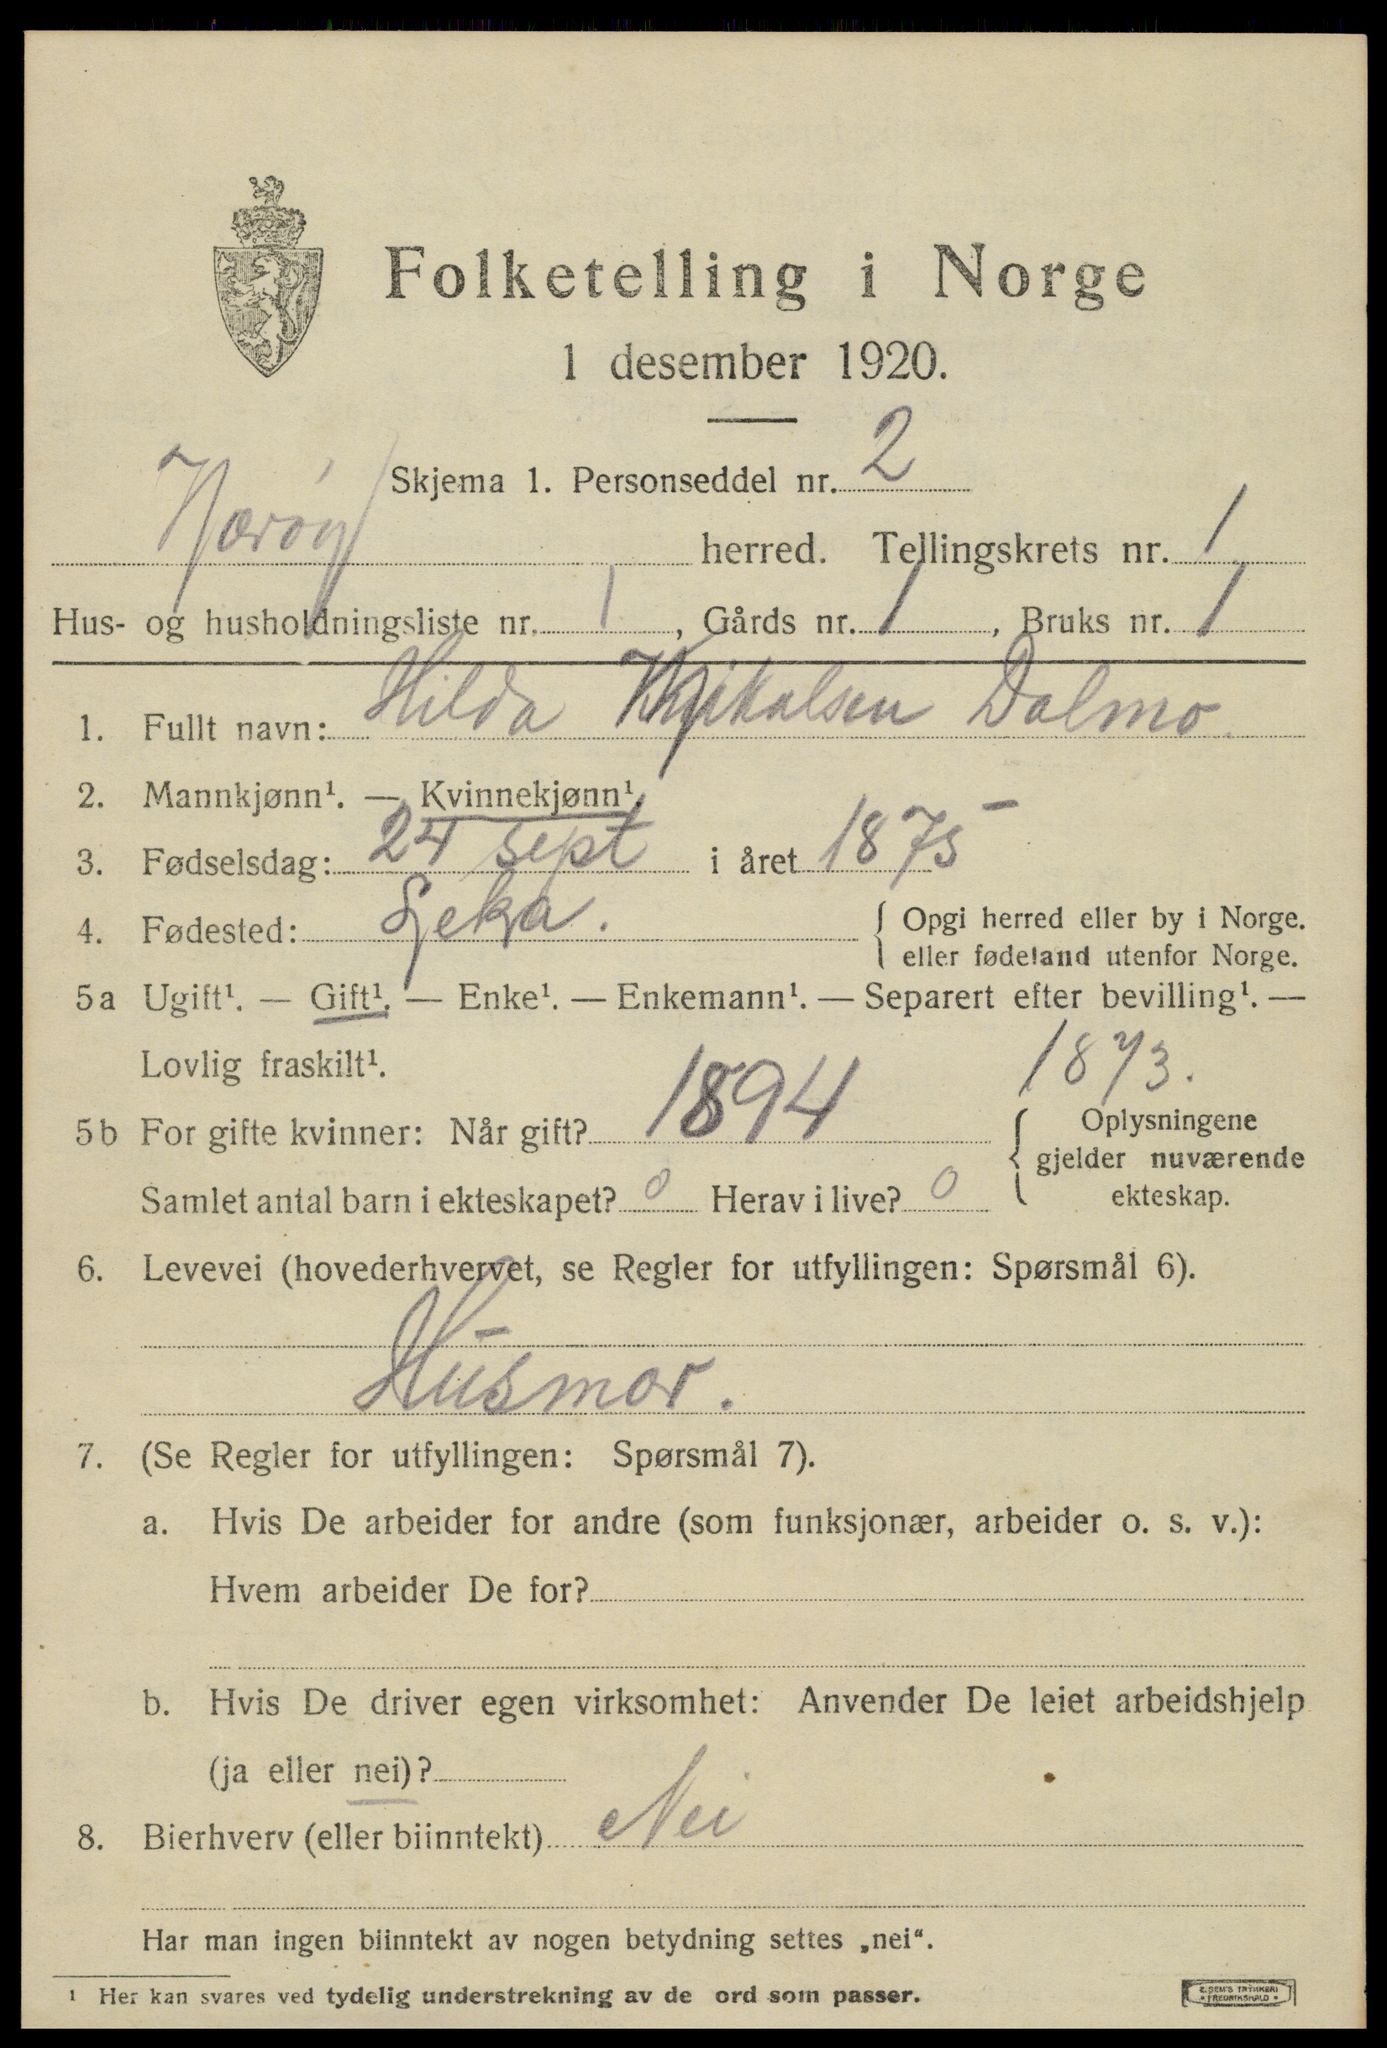 Folketelling i Norge
1 desember 1920.
Skjema 1. Personseddel nr. 2
Nærøy herred. Tellingskrets nr. 1
Hus- og husholdningsliste nr. 1, Gårds nr. 1, Bruks nr. 1
1. Fullt navn: Hilda Mikalsen Dalmo.
2. Mannkjønn¹. — Kvinnekjønn¹.
3. Fødselsdag: 24 sept i året 1875
4. Fødested: { Opgi herred eller by i Norge.
eller fødeland utenfor Norge.
5a Ugift¹. — Gift¹. — Enke¹. — Enkemann¹. — Separert efter bevilling¹. —
Lovlig fraskilt¹. 1873.
5b For gifte kvinner: Når gift? 1894 { Oplysningene
gjelder nuværende
Samlet antal barn i ekteskapet? 0 Herav i live? 0 ekteskap.
6. Levevei (hovederhvervet, se Regler for utfyllingen: Spørsmål 6).
Husmor.
7. (Se Regler for utfyllingen: Spørsmål 7).
a. Hvis De arbeider for andre (som funksjonær, arbeider o. s. v.):
Hvem arbeider De for?
b. Hvis De driver egen virksomhet: Anvender De leiet arbeidshjelp
(ja eller nei)?
8. Bierhverv (eller biinntekt) Nei
Har man ingen biinntekt av nogen betydning settes „nei“.
¹ Her kan svares ved tydelig understrekning av de ord som passer.
E. SEM'S TRYKKERI
• FREDRIKSHALD •